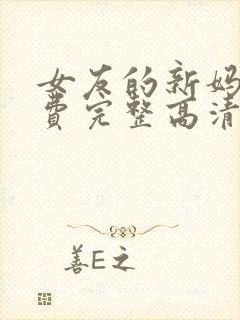 女友的新妈
费完整高清
善E之